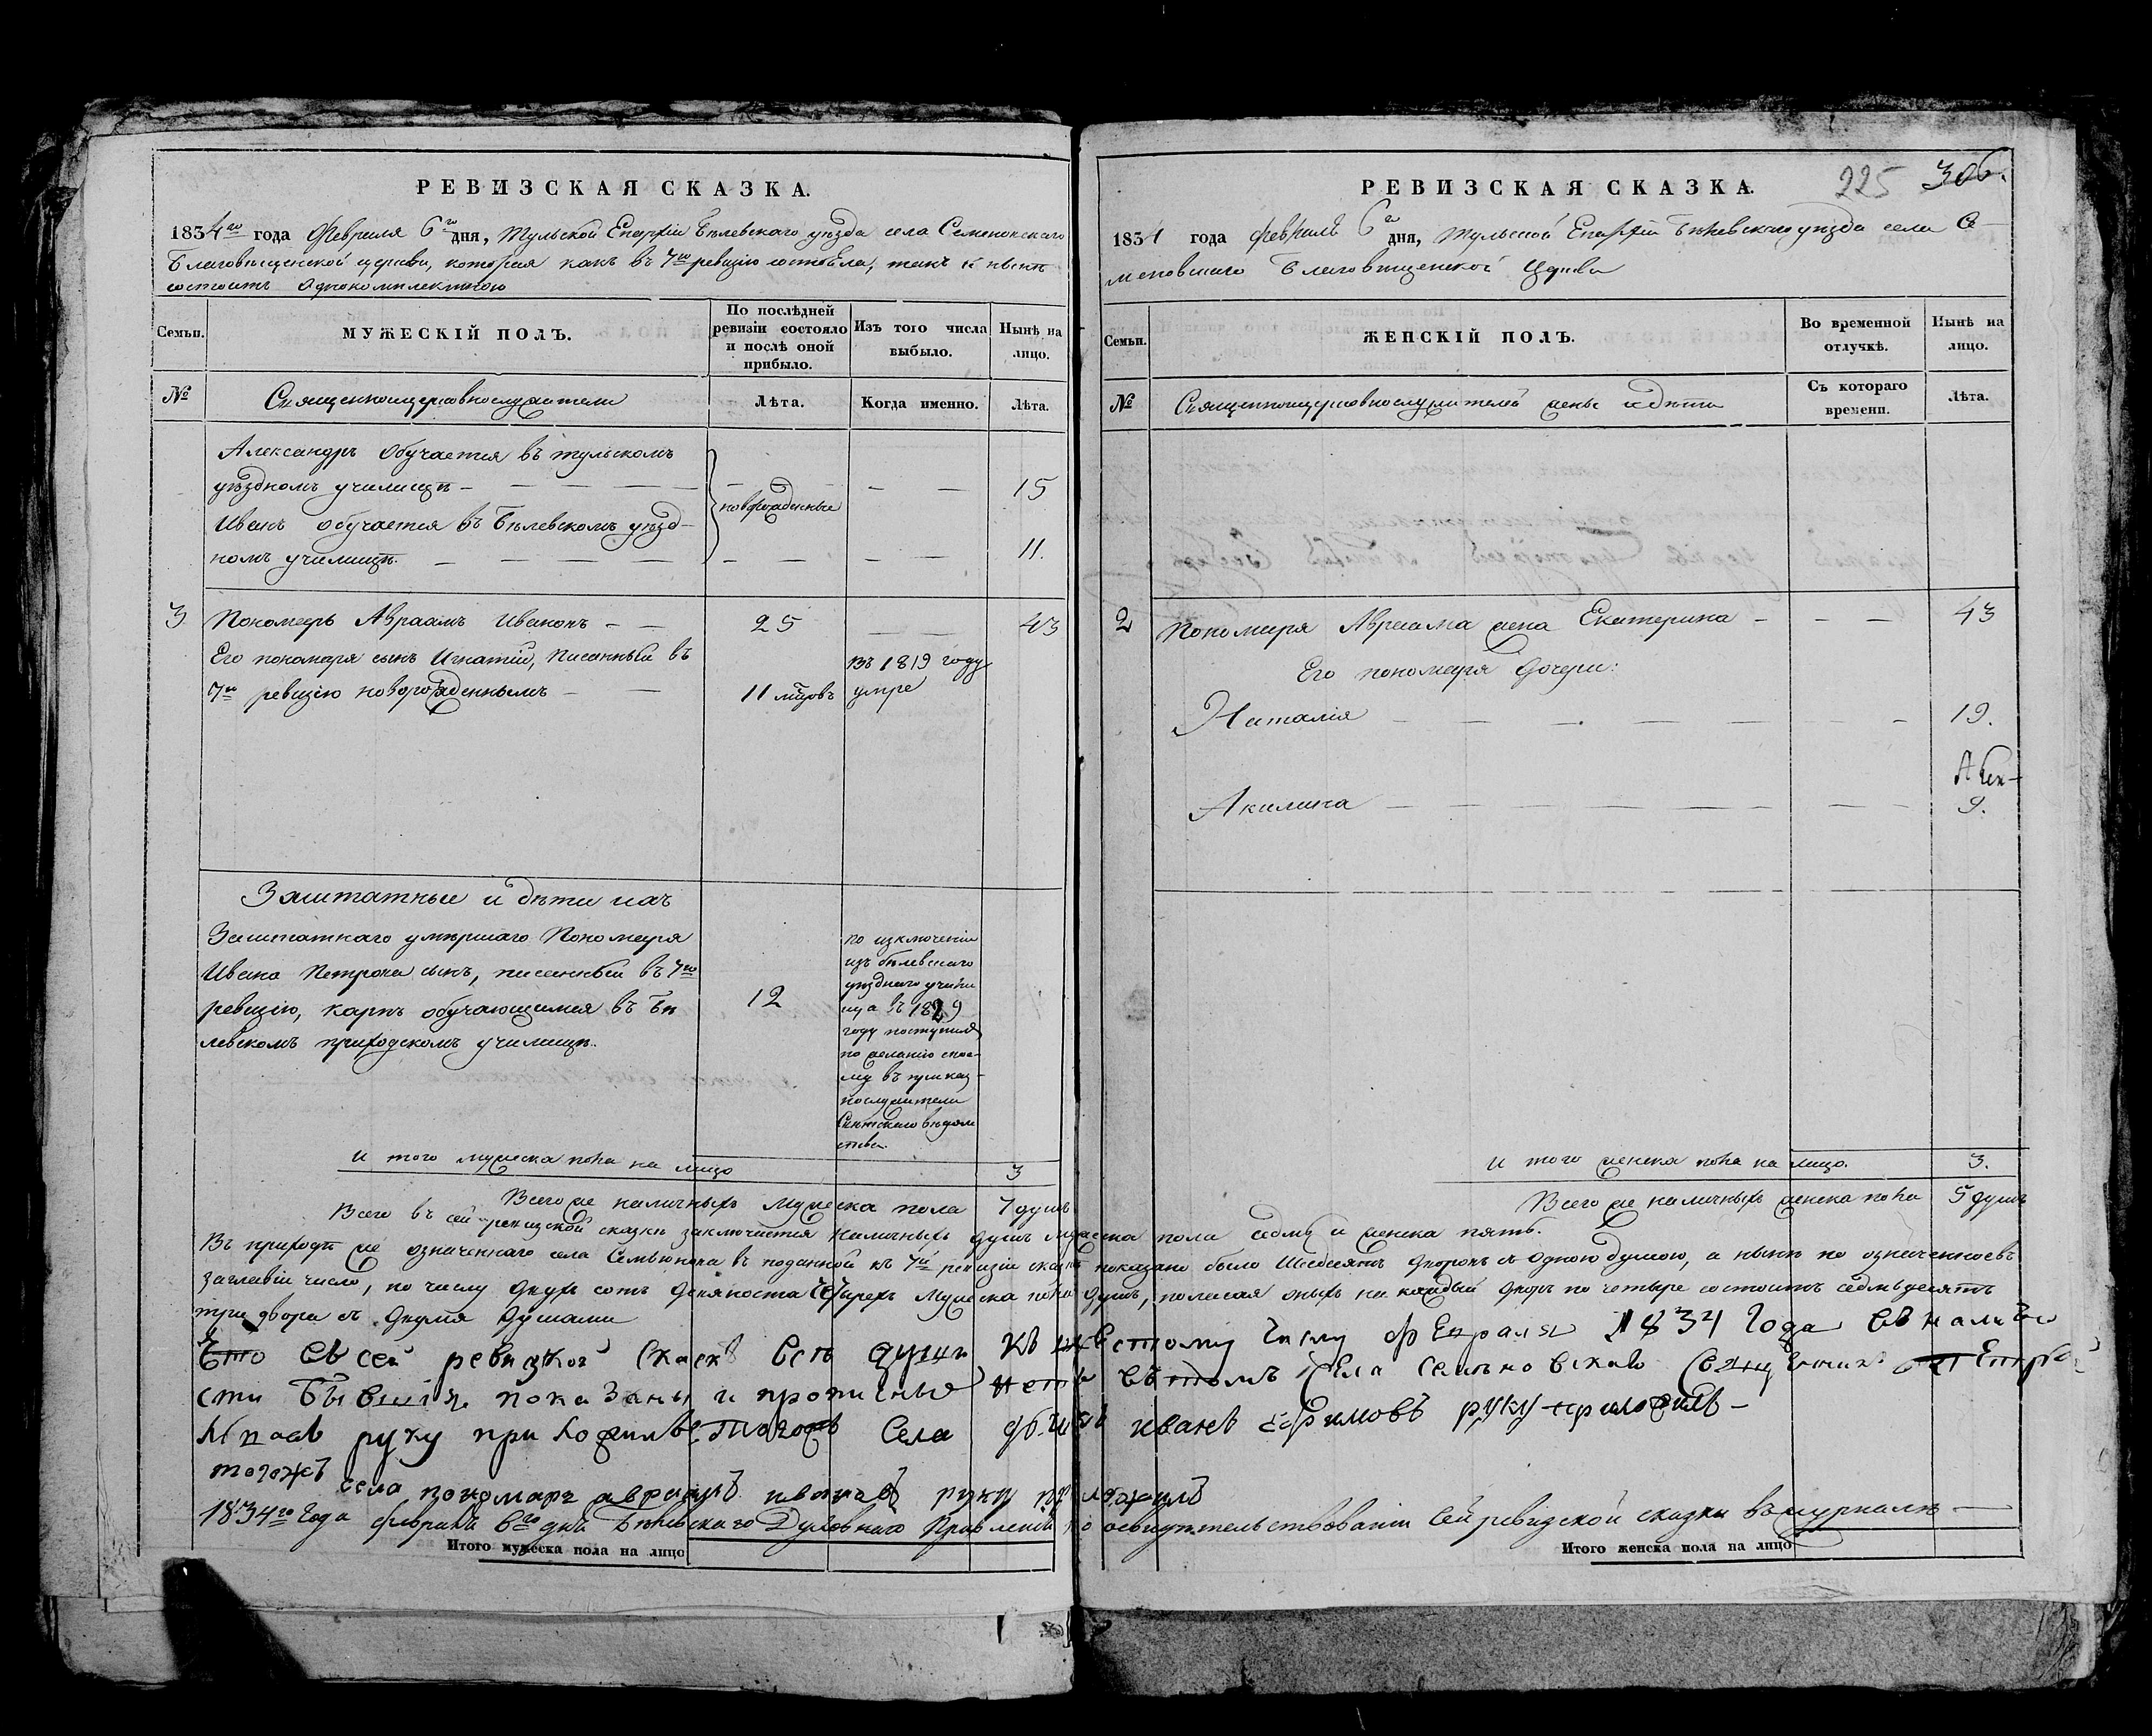 РЕВИЗСКАЯ СКАЗКА.
1834го года Февраля 6го дня, Тульской Епархіи Бѣлевскаго уѣзда села Семеновскаго
Благовѣщенской церкви, которая какъ въ 7ю ревизію состояла, такъ и нынѣ
состоитъ однокомплектною
Семьи.
МУЖЕСКІЙ ПОЛЪ.
По послѣдней
ревизіи состояло
и послѣ оной
прибыло.
Изъ того числа
выбыло.
Нынѣ на
лицо.
№
Священноцерковнослужители
Лѣта.
Когда именно.
Лѣта.
Александръ обучается въ тульскомъ
уѣздномъ училищѣ — — — — — — 15
новорожденные
Иванъ обучается въ Бѣлевскомъ уѣзд-
номъ училищѣ. — — — — — — 11.
3 Пономарь Авраамъ Ивановъ — — 25 — — 43
Его пономаря сынъ Игнатій, писанный въ
7ю ревизію новорожденнымъ — — 11 мцовъ
въ 1819 году
умре
Заштатные и дѣти ихъ
Заштатнаго умершаго Пономаря
Ивана Петрова сынъ, писанный въ 7ю
ревизію, карпъ обучающимся въ Бѣ
левскомъ приходскомъ училищѣ.
12
по изключеніи
изъ бѣлевскаго
уѣзднаго учили
ща въ 1829
году поступилъ
по желанію свое-
му въ приказ-
нослужители
Свѣтскаго вѣдом
ства.
и того мужеска пола на лицо 3
Всего же наличныхъ мужеска пола 7 душъ
РЕВИЗСКАЯ СКАЗКА.
225 306.
1834 года февраля 6го дня, Тульской Епархіи Бѣлевскаго уѣзда села Се-
меновскаго Благовѣщенской Церкви
Семьи.
ЖЕНСКІЙ ПОЛЪ.
Во временной
отлучкѣ.
Нынѣ на
лицо.
№
Священноцерковнослужителей жены и дѣти
Съ котораго
времени.
Лѣта.
2 Пономаря Авраама жена Екатерина — — — 43
Его пономаря дочери:
Наталія — — — — — — 19.
Акилина — — — — — — 9.
и того женска пола на лицо. 3.
Всего же наличныхъ женска пола 5 душъ
Всего въ сей ревизской сказки заключается наличныхъ душъ мужеска пола седмь и женска пять.
Въ приходѣ же означеннаго села Семьюнова въ поданной къ 7й ревизіи сказкѣ показано было дворовъ съ одною душою, а нынѣ по означенное въ
заглавіи число, по числу двухъ сотъ девяноста четырехъ мужеска пола душъ, полагая оныхъ на каждый дворъ по четыре состоитъ седмьдесятъ
три двора съ двумя душами
Что въ сей ревизкой скаскѣ всѣ души къ шестому числу февраля 1834 года въ налично
сти бывшія показаны и прописныхъ нетъ въ томъ села священникъ
руку приложилъ Тогожъ села дьячекъ иванъ ефимовъ руку приложилъ —
тогожъ села пономарь авраамъ ивановъ руку приложилъ
1834го года февраля 6го дня Бѣлевскаго Духовнаго Правленія по освидѣтельствованіи сей ревизской сказки въ журналѣ —
Итого мужеска пола на лицо
Итого женска пола на лицо